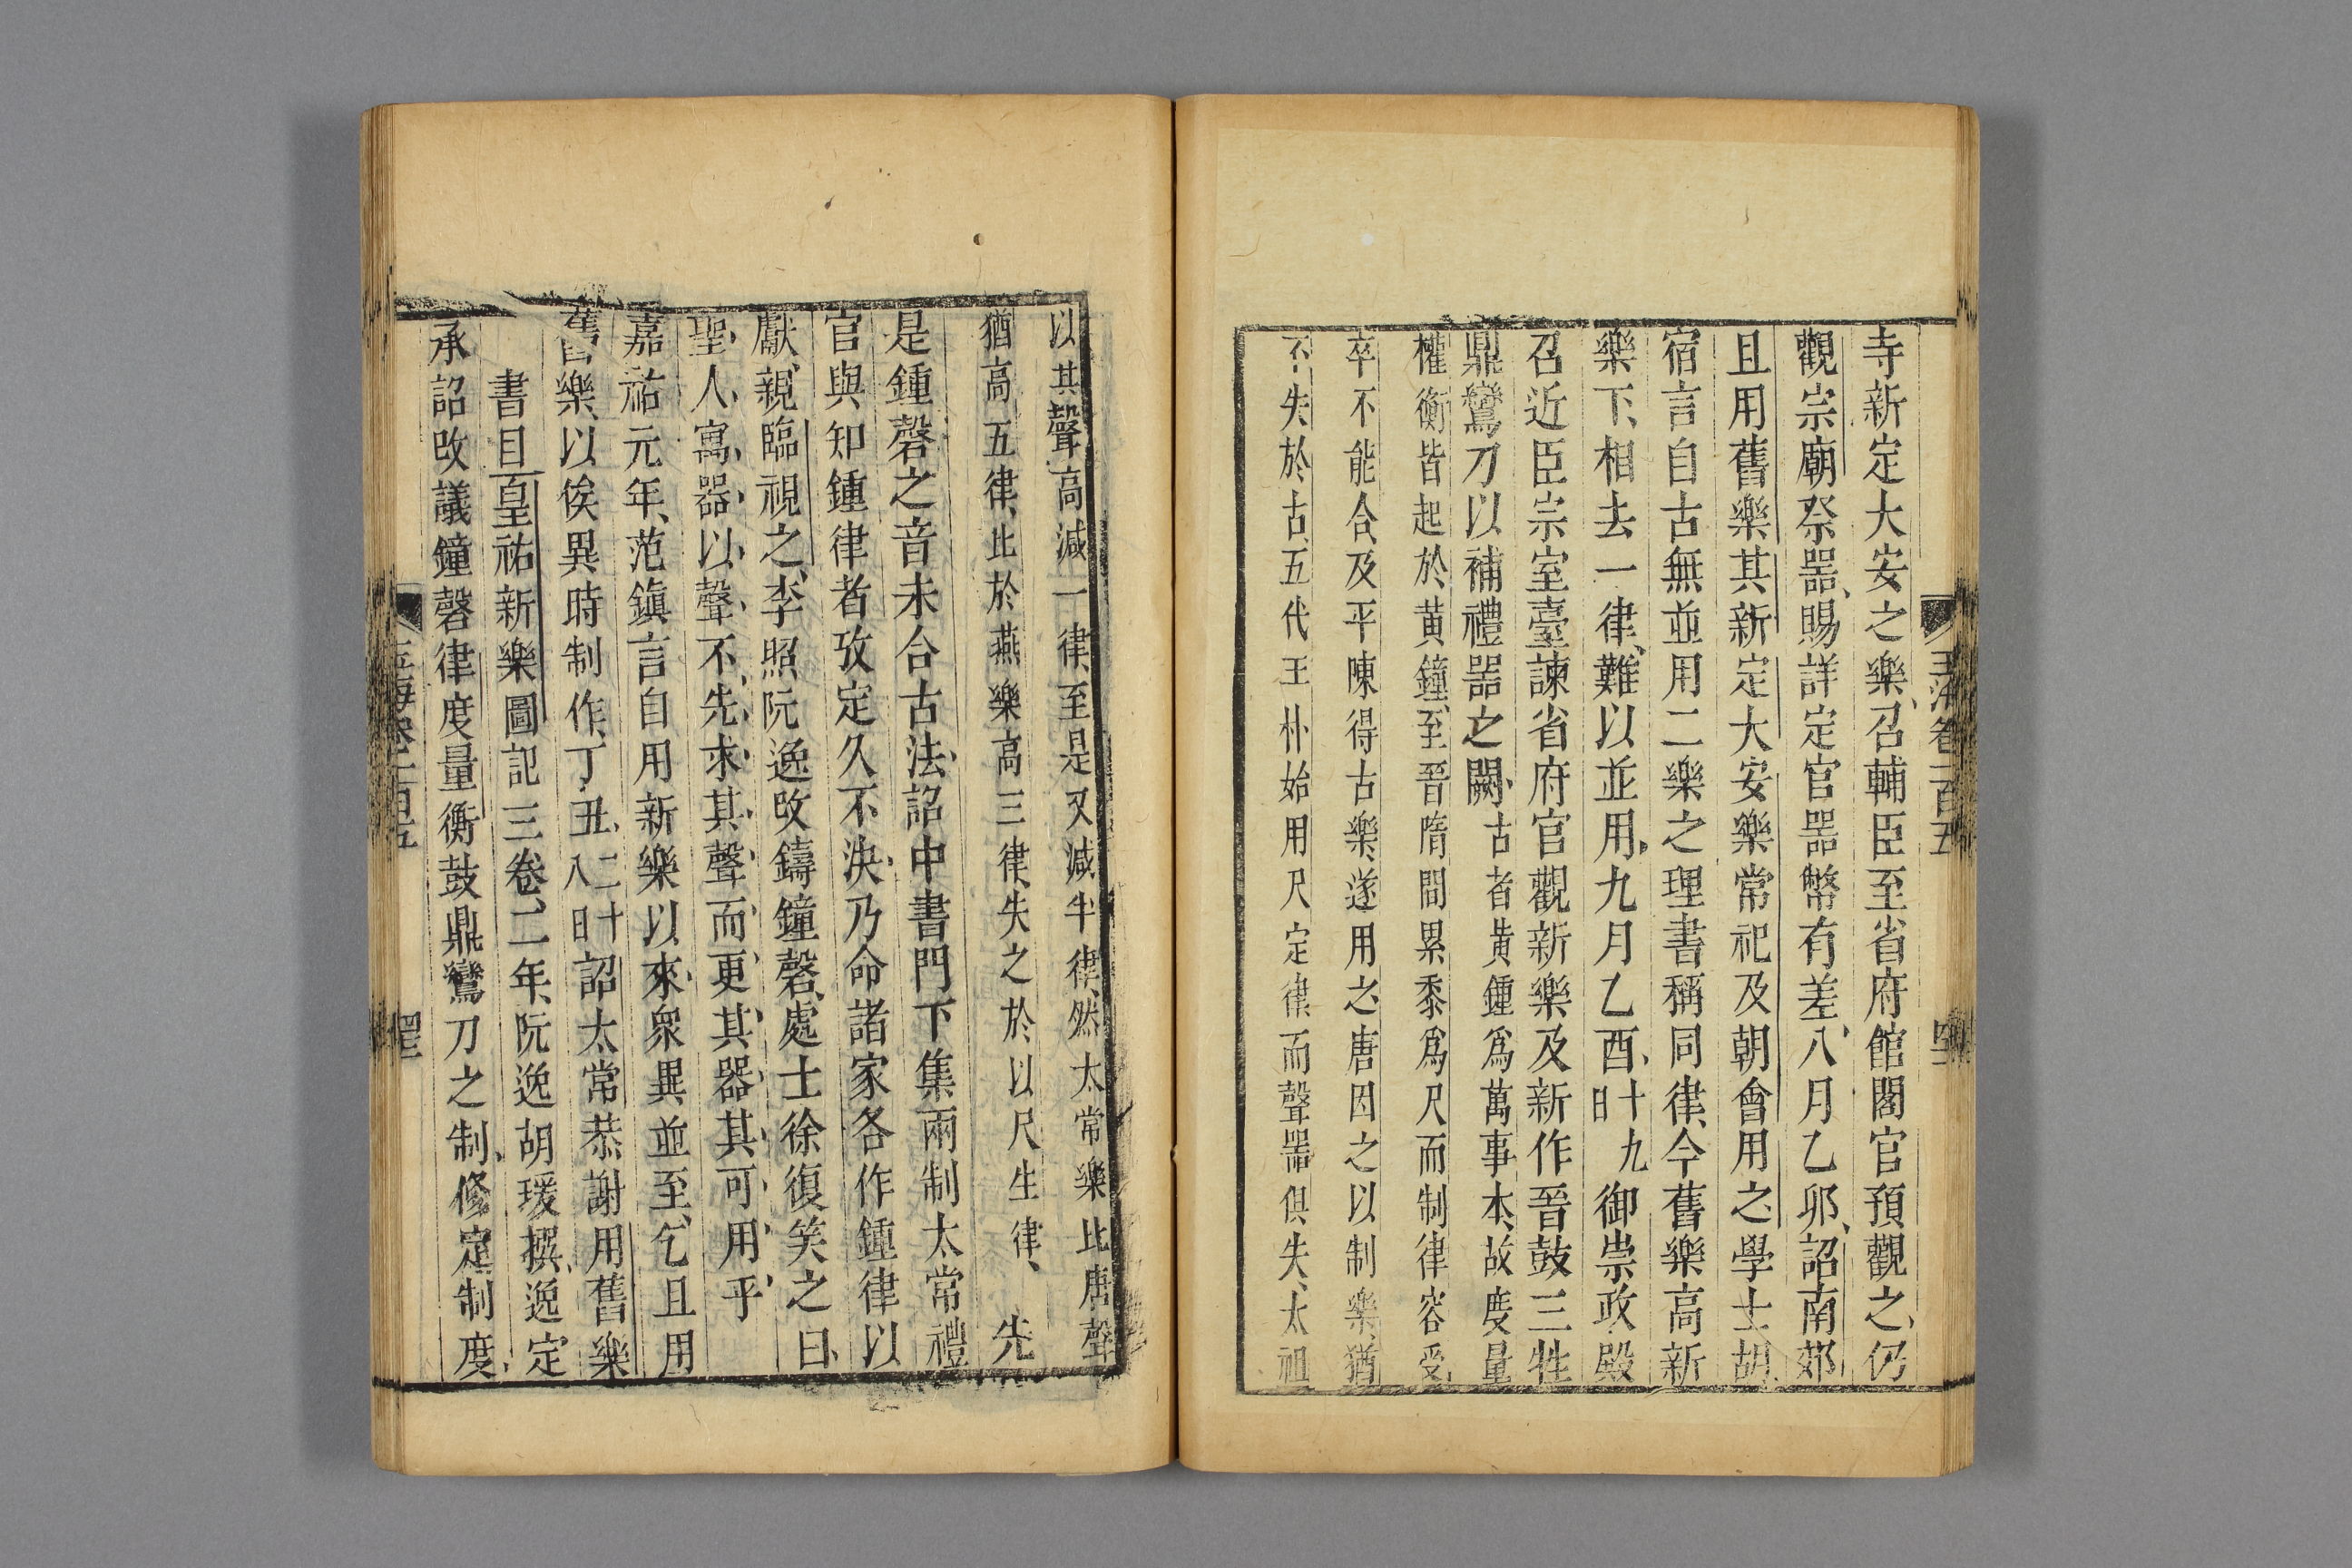 玉海卷一百五
寺新定大安之樂召輔臣至省府館閣官預觀之仍
觀宗廟祭器賜詳定官器幣有差八月乙卯詔南郊
且用舊樂其新定大安樂常祀及朝會用之學士胡
宿言自古無並用二樂之理書稱同律今舊樂高新
樂下相去一律難以並用九月乙酉十九日御崇政殿
召近臣宗室臺諫省府官觀新樂及新作晉鼓三牲
鼎鸞刀以補禮器之闕古者黃鍾爲萬事本故度量
權衡皆起於黃鐘至晉隋間累黍爲尺而制律容受
卒不能合及平陳得古樂遂用之唐因之以制樂猶
不失於古五代王朴始用尺定律而聲器俱失太祖
以其聲高減一律至是又減半律然太常樂比唐聲
猶高五律比於燕樂高三律失之於以尺生律 先
是鍾磬之音未合古法詔中書門下集兩制太常禮
官與知鍾律者攷定久不決乃命諸家各作鍾律以
獻親臨視之李照阮逸改鑄鐘磬處士徐復笑之曰
聖人寓器以聲不先求其聲而更其器其可用乎
嘉祐元年范鎭言自用新樂以來衆異並至乞且用
舊樂以俟異時制作丁丑二十八日詔太常恭謝用舊樂
書目皇祐新樂圖記三卷二年阮逸胡瑗撰逸定
承詔改議鐘磬律度量衡鼓鼎鸞刀之制修定制度
玉海卷一百五